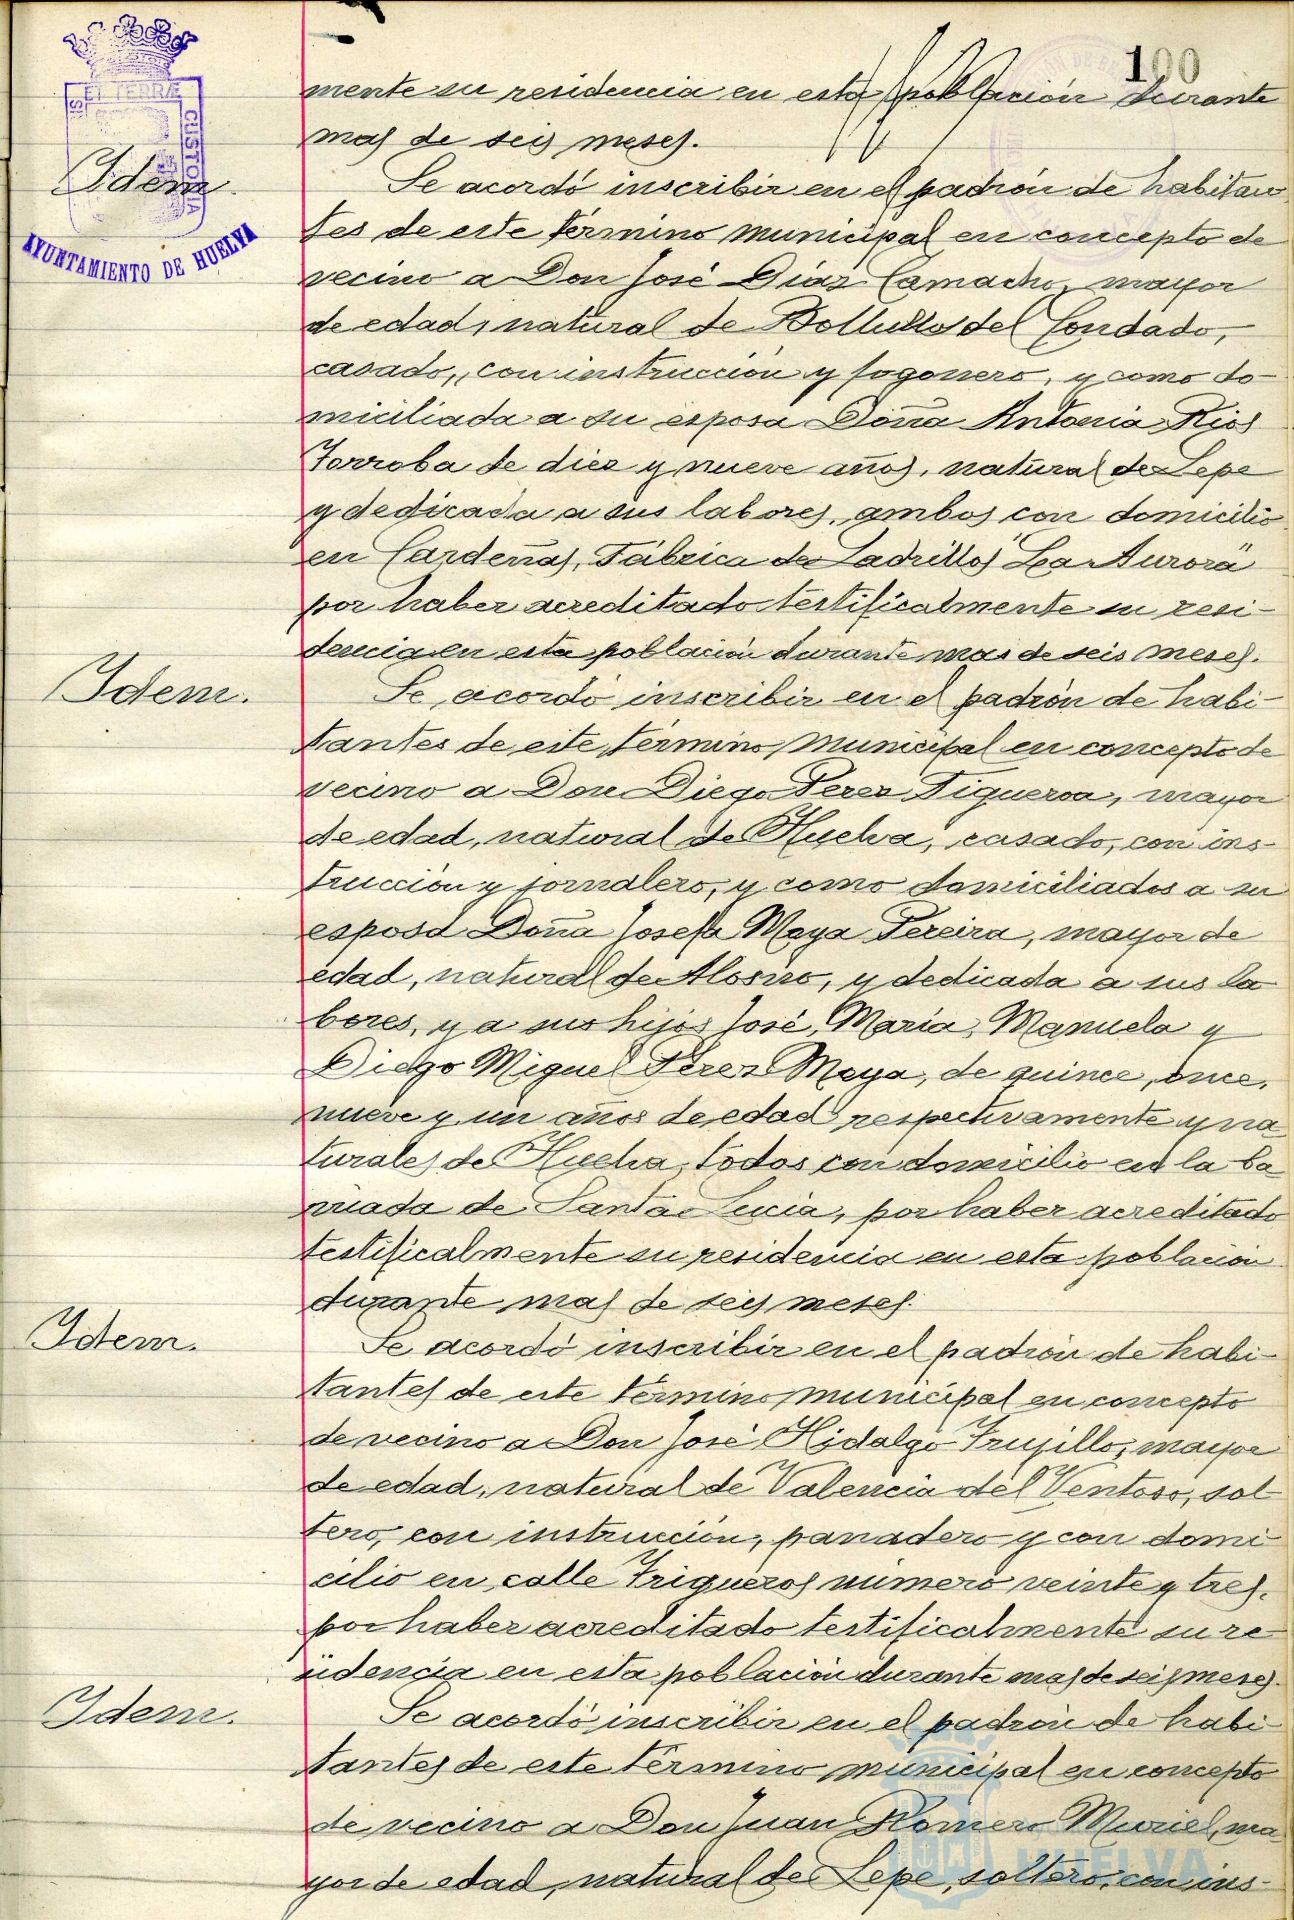 100
mente su residencia en esta población durante
mas de seis meses.
Idem.
Se acordó inscribir en el padrón de habitan
tes de este término municipal en concepto de
vecino a Don José Díaz Camacho, mayor
de edad, natural de Bollullos del Condado,
casado, con instrucción y fogonero, y como do-
miciliada a su esposa Doña Antonia Rios
Torroba de diez y nueve años, natural de Lepe
y dedicada a sus labores, ambos con domicilio
en Cardeñas, Fábrica de Ladrillos "La Aurora"
por haber acreditado testificalmente su resi-
dencia en esta población durante mas de seis meses.
Idem.
Se acordó inscribir en el padrón de habi-
tantes de este término municipal en concepto de
vecino a Don Diego Perez Figueroa, mayor
de edad, natural de Huelva, casado, con ins-
trucción y jornalero, y como domiciliados a su
esposa Doña Josefa Maya Pereira, mayor de
edad, natural de Alosno, y dedicada a sus la
bores, y a sus hijos José, María, Manuela y
Diego Miguel Pérez Maya, de quince, once,
nueve y un años de edad respectivamente y na
turales de Huelva, todos con domicilio en la ba
rriada de Santa Lucia, por haber acreditado
testificalmente su residencia en esta población
durante mas de seis meses.
Idem.
Se acordó inscribir en el padrón de habi-
tantes de este término municipal en concepto
de vecino a Don José Hidalgo Trujillo, mayor
de edad, natural de Valencia del Ventoso, sol
tero, con instrucción, panadero y con domi-
cilio en calle Trigueros número veinte y tres,
por haber acreditado testificalmente su re-
sidencia en esta población durante mas de seis meses.
Idem.
Se acordó inscribir en el padrón de habi-
tantes de este término municipal en concepto
de vecino a Don Juan Romero Muriel, ma
yor de edad, natural de Lepe, soltero, con ins-
ET TERRÆ
CUSTODIA
AYUNTAMIENTO DE HUELVA
HUELVA